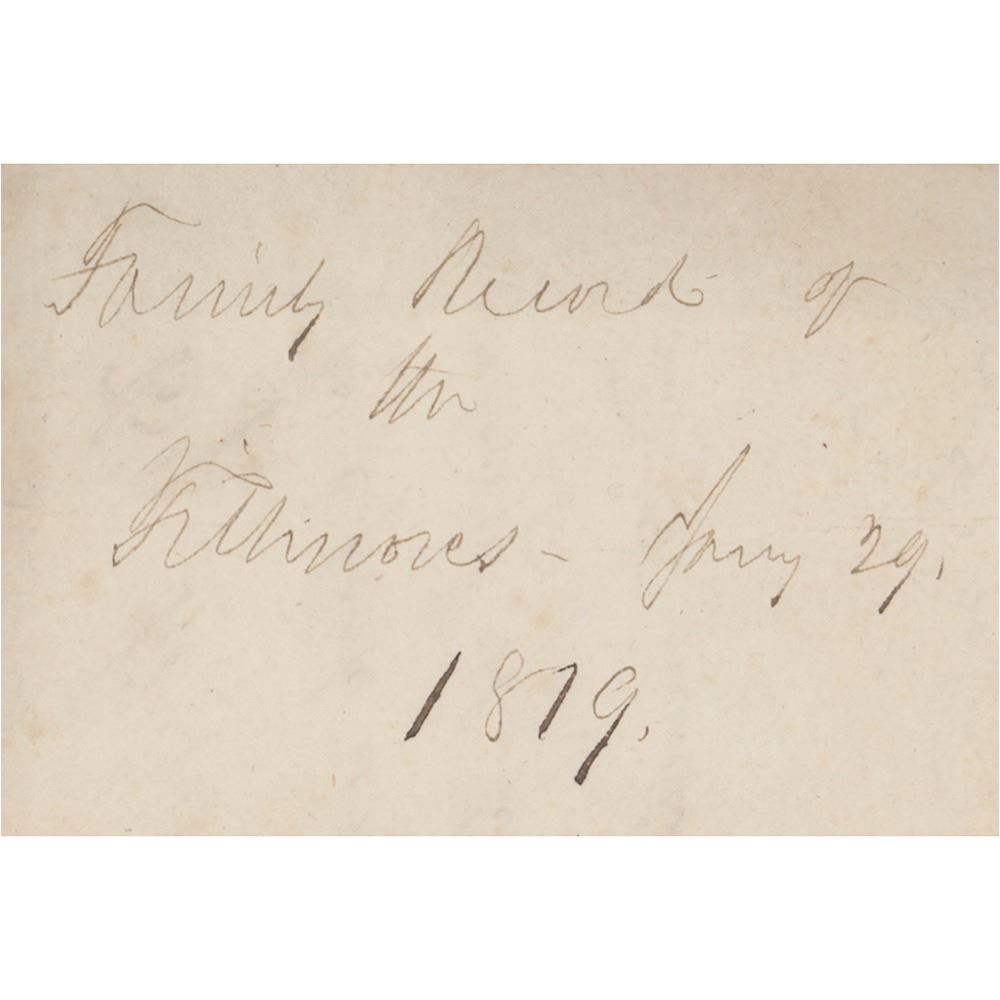 Family Record of
the
Fillmores - Jany 29.
1819.